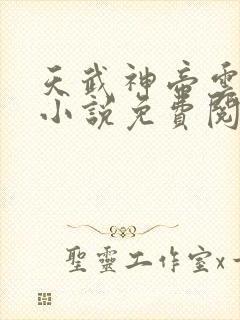 天武神帝雲
小說免費閱
聖靈工作室x